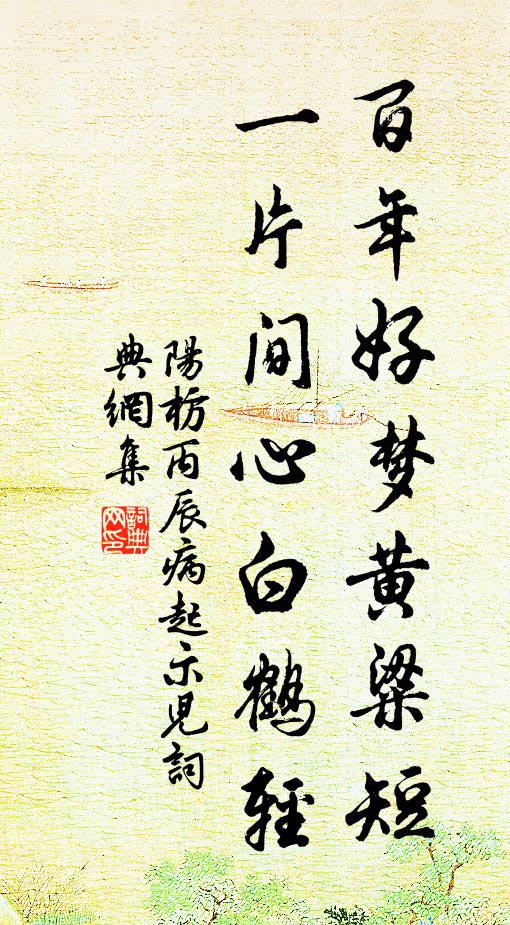 百年好梦黄粱短
一片间心白鹤轻
陽枋丙辰病起示児詞
典網集
詞典网印